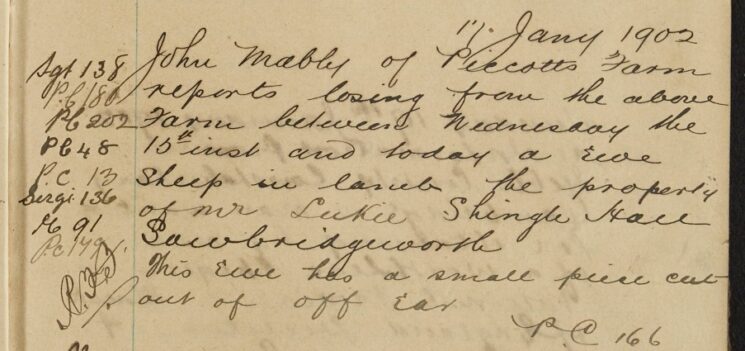 17. Jany 1902
Sgt 138 John Mably of Piccotts Farm
P.C 180 reports losing from the above
PC 202 Farm between Wednesday the
PC 48 15th inst and today a Ewe
P.C. 13 Sheep in lamb the property
Sergt 136 of Mr Lukie Shingle Hall
91 Sawbridgeworth
P.C 179
This Ewe has a small piece cut
out of off Ear
P.C 166